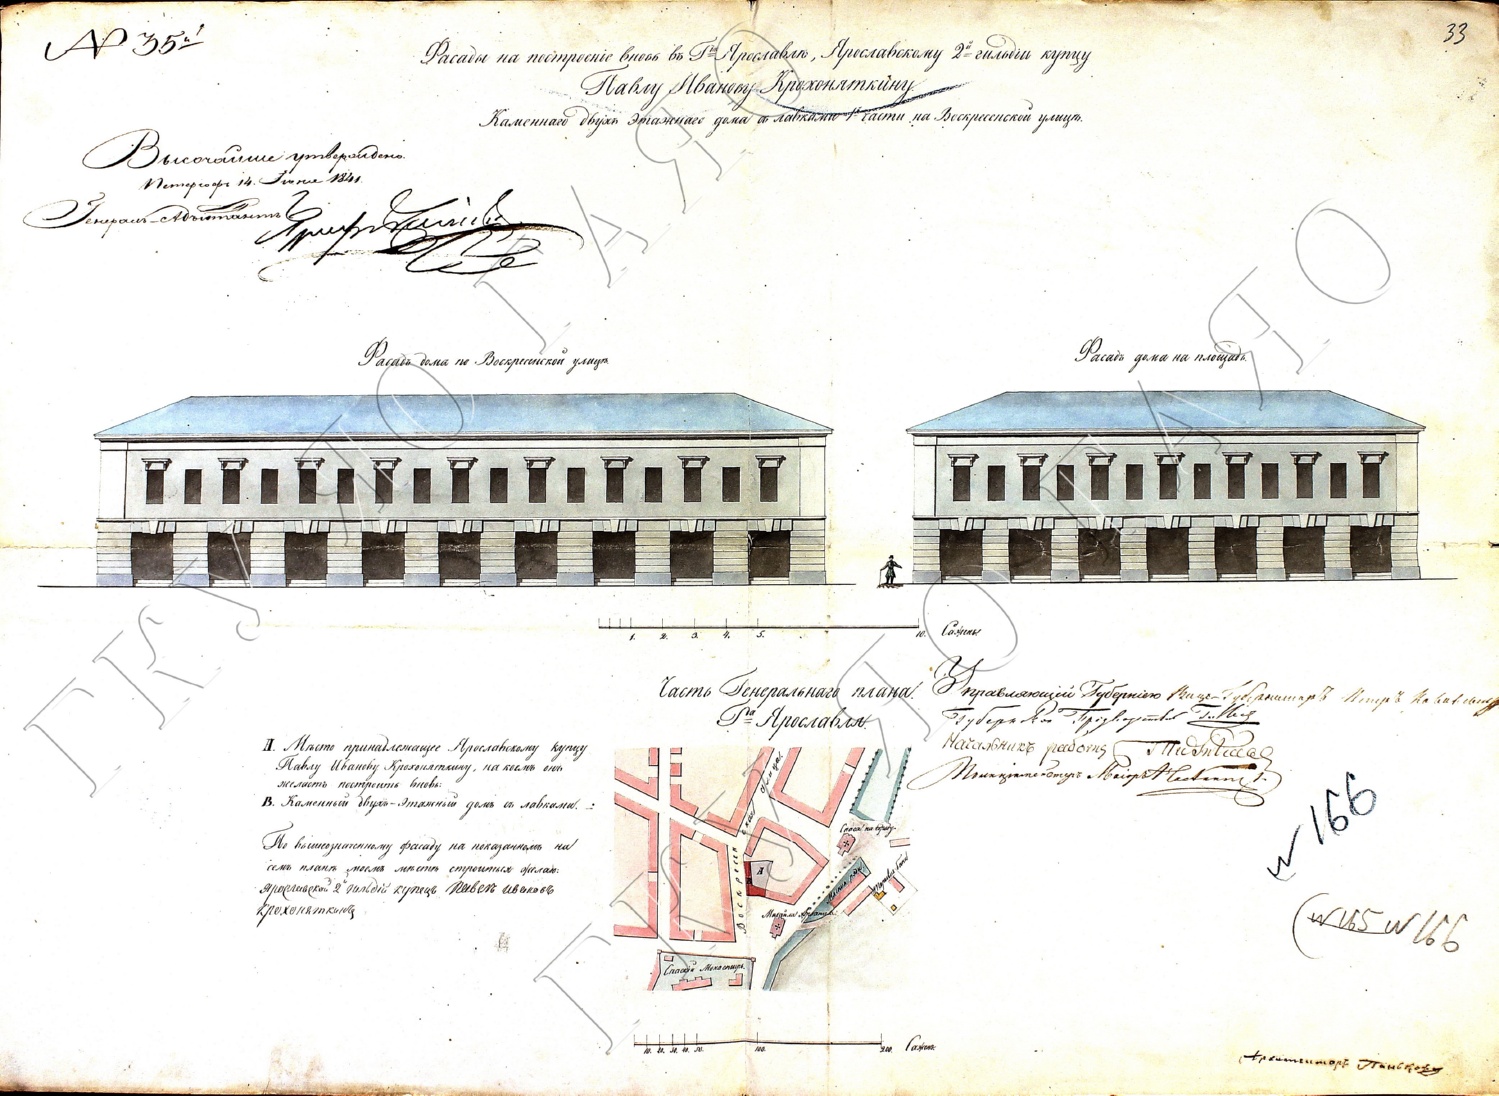 № 35й
33
Фасады на построеніе вновь въ Г.ѣ Ярославлѣ, Ярославскому 2й гильдіи купцу
Павлу Иванову Крохоняткину
Каменнаго двухъ этажнаго дома съ лавками 1 части на Воскресенской улицѣ.
Высочайше утверждено.
Петергофъ 14. Іюня 1841.
Генералъ-Адъютантъ
Фасадъ дома по Воскресенской улицѣ
Фасадъ дома на площадь.
1. 2. 3. 4. 5. 10. Сажены
Часть Генеральнаго плана
Г.ра Ярославля.
Управляющій Губерніею Вице-Губернаторъ
Губернскій
Начальникъ
Полиціймейстеръ Маіоръ
А. Мѣсто принадлежащее Ярославскому купцу
Павлу Иванову Крохоняткину, на коемъ онъ
желаетъ построить вновь:
В. Каменный двухъ-этажный домъ съ лавками.
По вышеозначенному фасаду на показанномъ на
семъ планѣ моемъ мѣстѣ строиться желаю:
Ярославской 2й гильдіи купецъ Павелъ Ивановъ
Крохоняткинъ
Воскресенская улица
А
В
Спаса на городу
Михаила Архангела
Спаскій Монастырь
№ 166
№ 165 № 166
10. 20. 30. 40. 50. 100. 200. Сажень
Архитекторъ Паньковъ
ГКУ ЯО ГАЯО
ГКУ ЯО ГАЯО